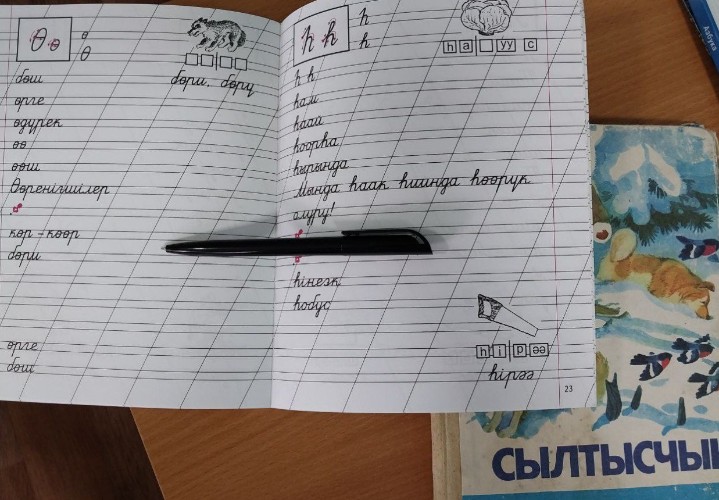 Ө ө
ө
Ө
бөри. бөру
бөш
өрге
өдүрек
өө
өөш
Өөренігшілер
көр - көөр
бөри
өрге
бөш
Һ һ
һ
һ
һа уу с
һ һ
һам
һааа
һоорһа
һырында
Мында һаак һшинда һөөрүк
олуру!
һінезқ
һобус
һірәә
һірәә
23
Азбука
СЫЛТЫСЧЫ